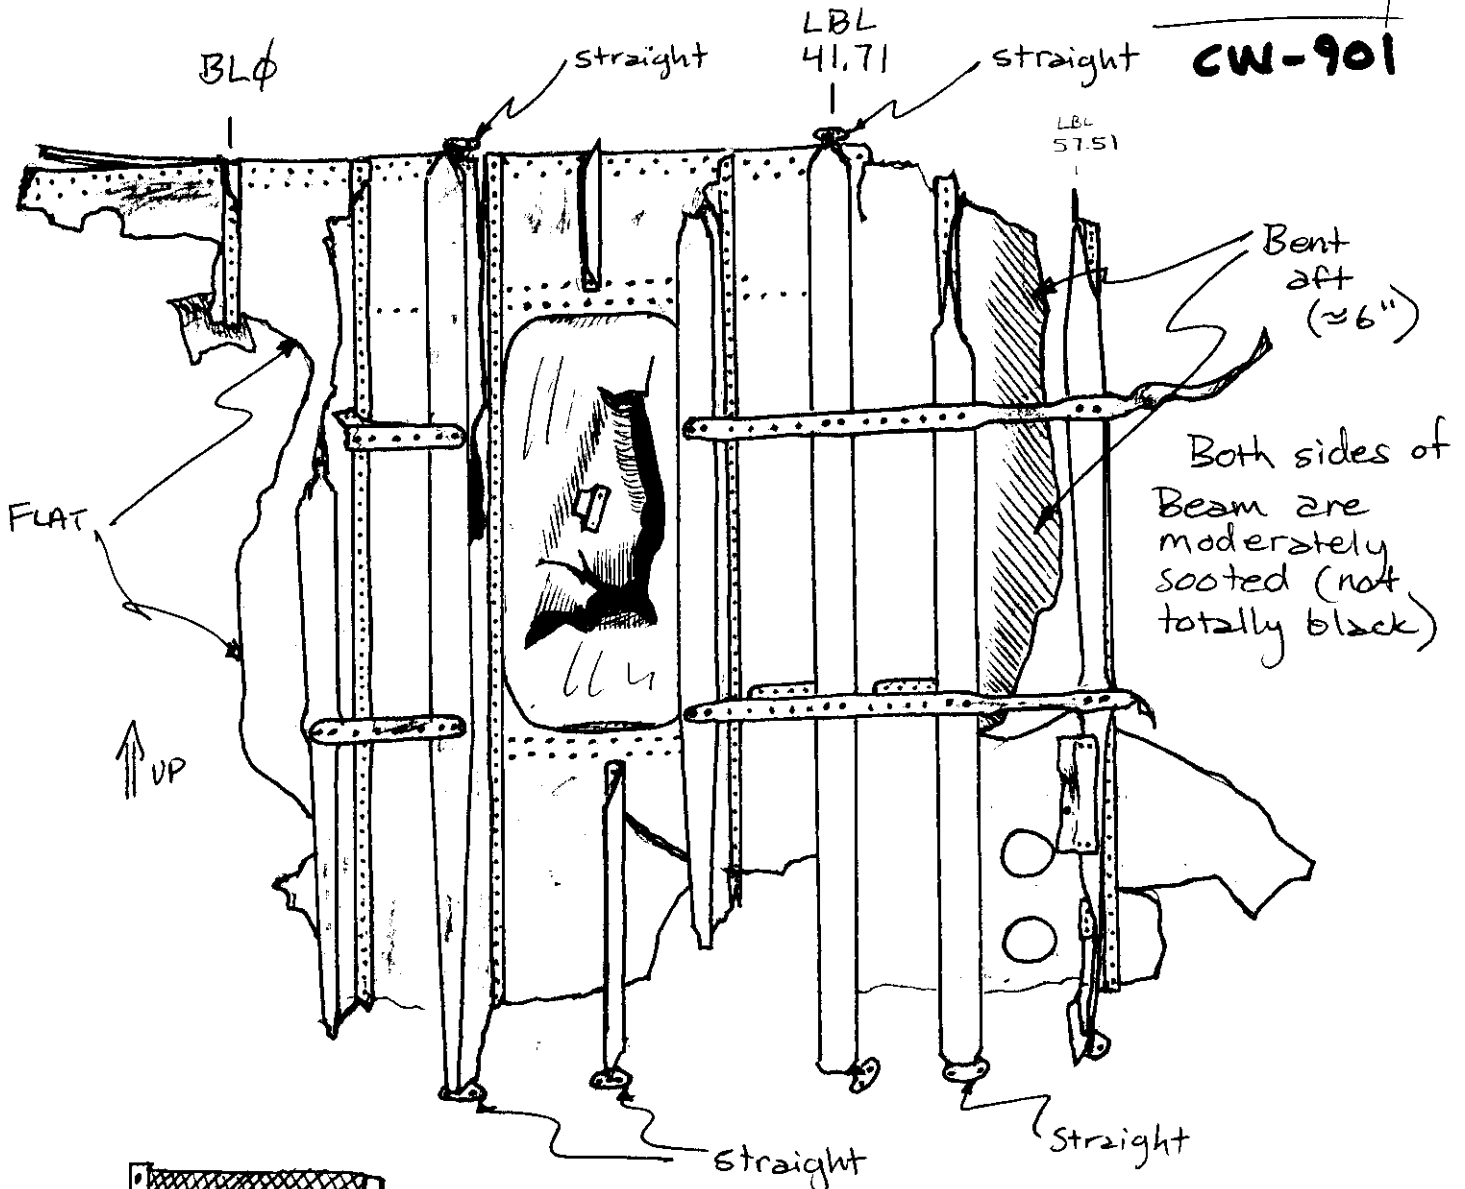 CW-901
BLØ
straight
LBL
41.71
straight
LBL
57.51
Bent
aft
(≈6")
Both sides of
Beam are
moderately
sooted (not
totally black)
FLAT
UP
straight
straight